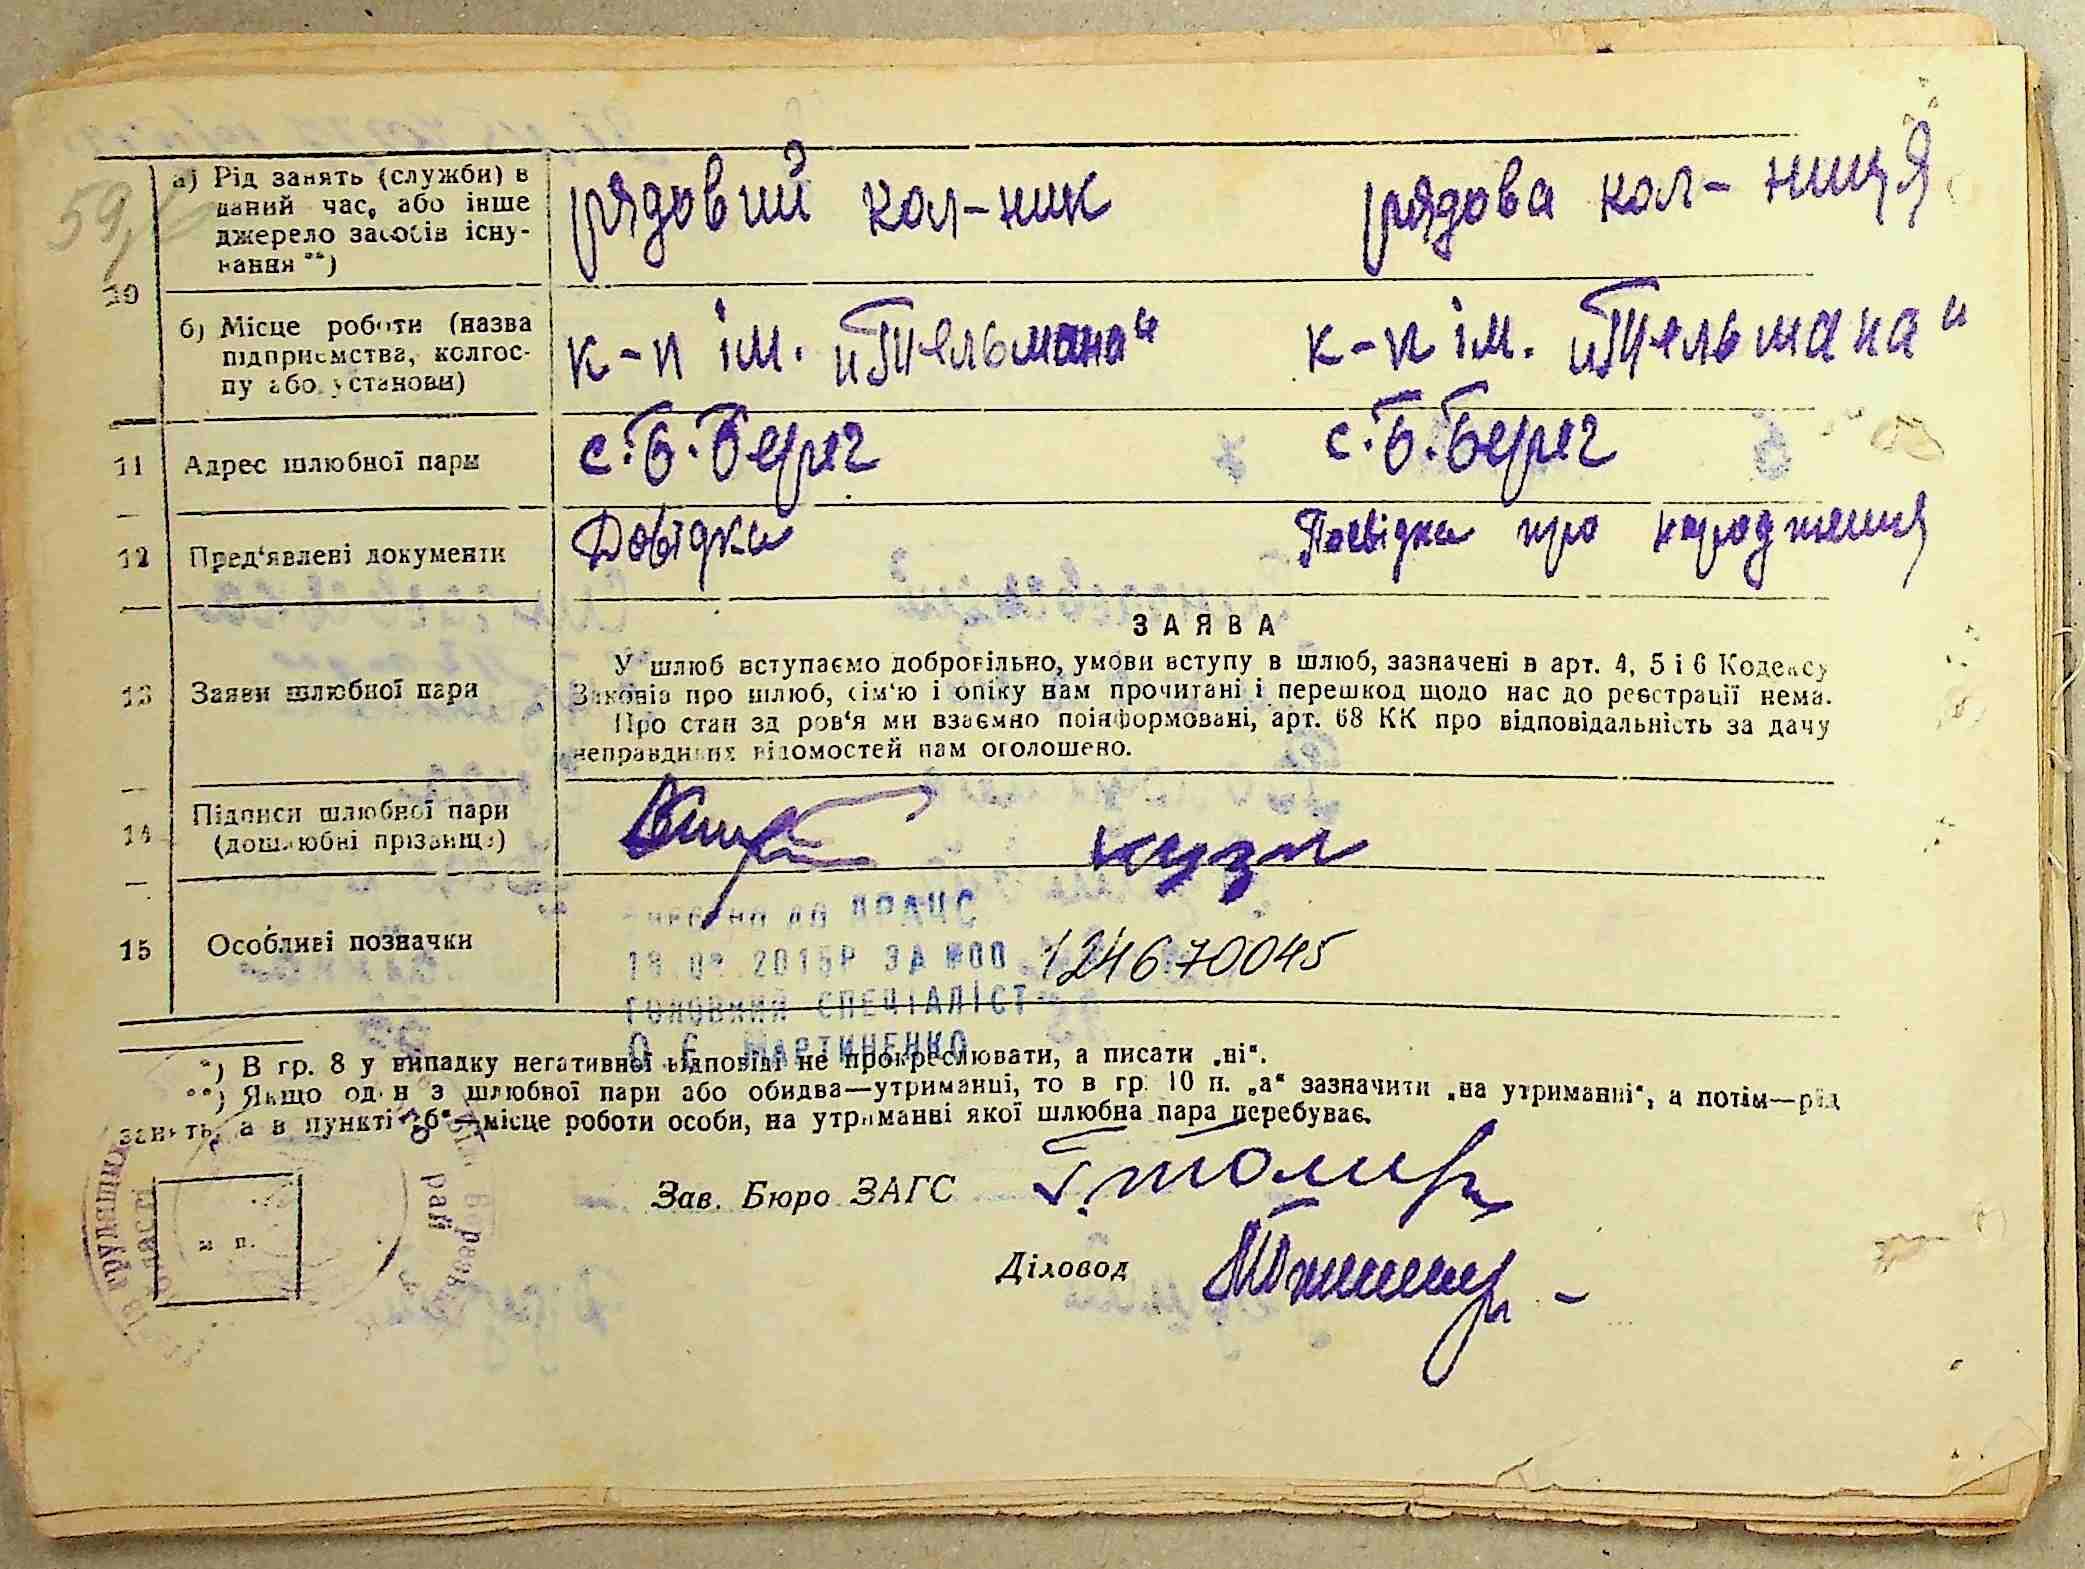 59
10
а) Рід занять (служби) в даний час, або інше джерело засобів існування **)
рядовий кол-ник
рядова кол-ниця
б) Місце роботи (назва підприємства, колгоспу або установи)
к-п ім. „Тельмана“
к-п ім. „Тельмана“
11 Адрес шлюбної пари
с. Б. Берег
с. Б. Берег
12 Пред'явлені документи
Довідка
Посвідка про народження
13 Заяви шлюбної пари
ЗАЯВА
У шлюб вступаємо добровільно, умови вступу в шлюб, зазначені в арт. 4, 5 і 6 Кодексу
Законів про шлюб, сім'ю і опіку нам прочитані і перешкод щодо нас до реєстрації нема.
Про стан здоров'я ми взаємно поінформовані, арт. 68 КК про відповідальність за дачу
неправдивих відомостей нам оголошено.
14 Підписи шлюбної пари
(дошлюбні прізвища)
15 Особливі позначки
ДО ДРАЦС
2015Р ЗА №00 124670045
ГОЛОВНИЙ СПЕЦІАЛІСТ
О. Є. МАРТИНЕНКО
*) В гр. 8 у випадку негативної відповіді не прокреслювати, а писати „ні“.
**) Якщо один з шлюбної пари або обидва—утриманці, то в гр. 10 п. „а“ зазначити „на утриманні“, а потім—рід
занять, а в пункті „б“—місце роботи особи, на утриманні якої шлюбна пара перебуває.
Зав. Бюро ЗАГС
м. п.
Діловод